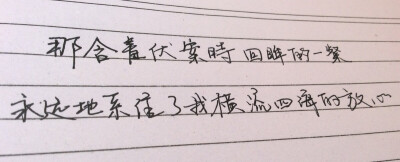 那含羞伏案時回眸的一粲
永远地系住了我横流四海的放心